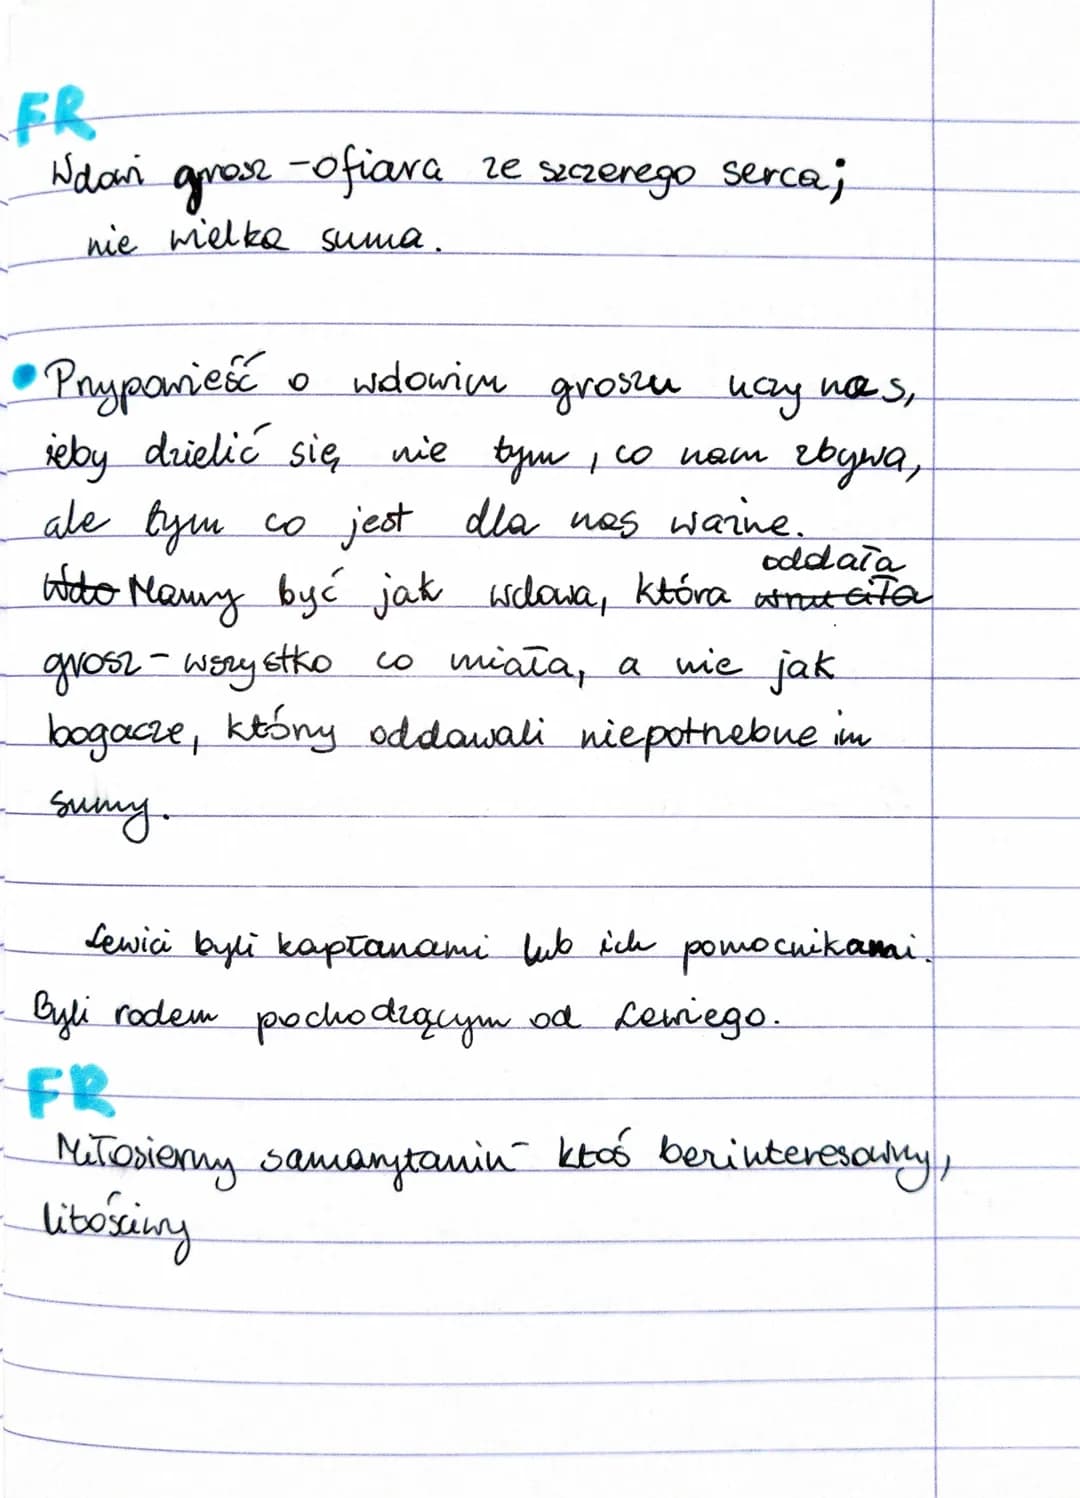 FR
Wdowi grosz - ofiara ze szczerego serca;
nie wielka suma.
• Przypowieść o wdowim groszu uczy nas,
żeby dzielić się nie tym, co nam zbywa,
ale tym co jest dla nas ważne.
oddała
Wdo Mamy być jak wdowa, która wrzuciła
grosz - wszystko co miała, a nie jak
bogacze, którzy oddawali niepotrzebne im
sumy.
Lewici byli kapłanami lub ich pomocnikami.
Byli rodem pochodzącym od Lewiego.
FR
Miłosierny samarytanin - ktoś bezinteresowny,
litościwy